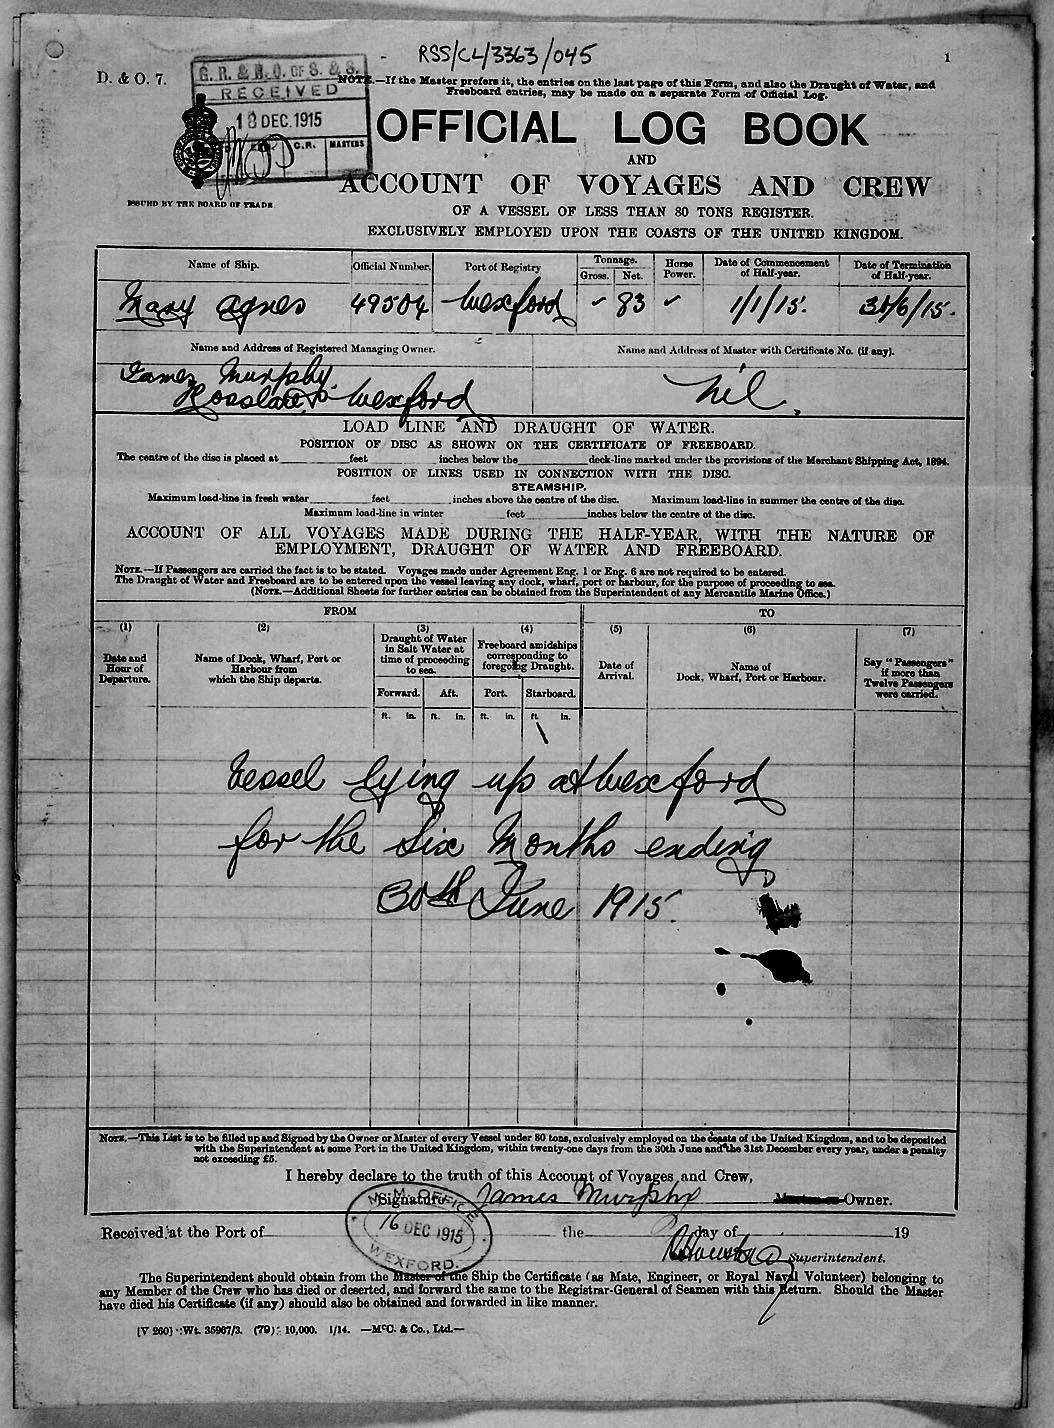 RSS/CL/3363/045
1
D. & O. 7.
G. R. & R. O. OF S. & S.
RECEIVED
18 DEC. 1915
C.R. MASTERS
NOTE.—If the Master prefers it, the entries on the last page of this Form, and also the Draught of Water, and
Freeboard entries, may be made on a separate Form of Official Log.
OFFICIAL LOG BOOK
AND
ACCOUNT OF VOYAGES AND CREW
ISSUED BY THE BOARD OF TRADE
OF A VESSEL OF LESS THAN 80 TONS REGISTER.
EXCLUSIVELY EMPLOYED UPON THE COASTS OF THE UNITED KINGDOM.
Name of Ship. Official Number. Port of Registry Tonnage. Gross. Net. Horse Power. Date of Commencement of Half-year. Date of Termination of Half-year.
Mary Agnes 49504 Wexford ✓ 83 ✓ 1/1/15. 30/6/15.
Name and Address of Registered Managing Owner. Name and Address of Master with Certificate No. (if any).
James Murphy
Rosslare Wexford Nil.
LOAD LINE AND DRAUGHT OF WATER.
POSITION OF DISC AS SHOWN ON THE CERTIFICATE OF FREEBOARD.
The centre of the disc is placed at feet inches below the deck-line marked under the provisions of the Merchant Shipping Act, 1894.
POSITION OF LINES USED IN CONNECTION WITH THE DISC.
STEAMSHIP.
Maximum load-line in fresh water feet inches above the centre of the disc. Maximum load-line in summer the centre of the disc.
Maximum load-line in winter feet inches below the centre of the disc.
ACCOUNT OF ALL VOYAGES MADE DURING THE HALF-YEAR, WITH THE NATURE OF
EMPLOYMENT, DRAUGHT OF WATER AND FREEBOARD.
NOTE.—If Passengers are carried the fact is to be stated. Voyages made under Agreement Eng. 1 or Eng. 6 are not required to be entered.
The Draught of Water and Freeboard are to be entered upon the vessel leaving any dock, wharf, port or harbour, for the purpose of proceeding to sea.
(NOTE.—Additional Sheets for further entries can be obtained from the Superintendent of any Mercantile Marine Office.)
FROM TO
(1) (2) (3) (4) (5) (6) (7)
Date and Hour of Departure.
Name of Dock, Wharf, Port or Harbour from which the Ship departs.
Draught of Water in Salt Water at time of proceeding to sea.
Freeboard amidships corresponding to foregoing Draught.
Date of Arrival.
Name of Dock, Wharf, Port or Harbour.
Say "Passengers" if more than Twelve Passengers were carried.
Forward. Aft. Port. Starboard.
ft. in. ft. in. ft. in. ft. in.
Vessel lying up at Wexford
for the Six Months ending
30th June 1915.
NOTE.—This List is to be filled up and Signed by the Owner or Master of every Vessel under 80 tons, exclusively employed on the coasts of the United Kingdom, and to be deposited
with the Superintendent at some Port in the United Kingdom, within twenty-one days from the 30th June and the 31st December every year, under a penalty
not exceeding £5.
I hereby declare to the truth of this Account of Voyages and Crew,
Signature James Murphy Master or Owner.
M. M. OFFICE
16 DEC 1915
WEXFORD.
Received at the Port of the day of 19
Superintendent.
The Superintendent should obtain from the Master of the Ship the Certificate (as Mate, Engineer, or Royal Naval Volunteer) belonging to
any Member of the Crew who has died or deserted, and forward the same to the Registrar-General of Seamen with this Return. Should the Master
have died his Certificate (if any) should also be obtained and forwarded in like manner.
[V 260] Wt. 35967/3. (79) 10,000. 1/14. —McC. & Co., Ltd.—